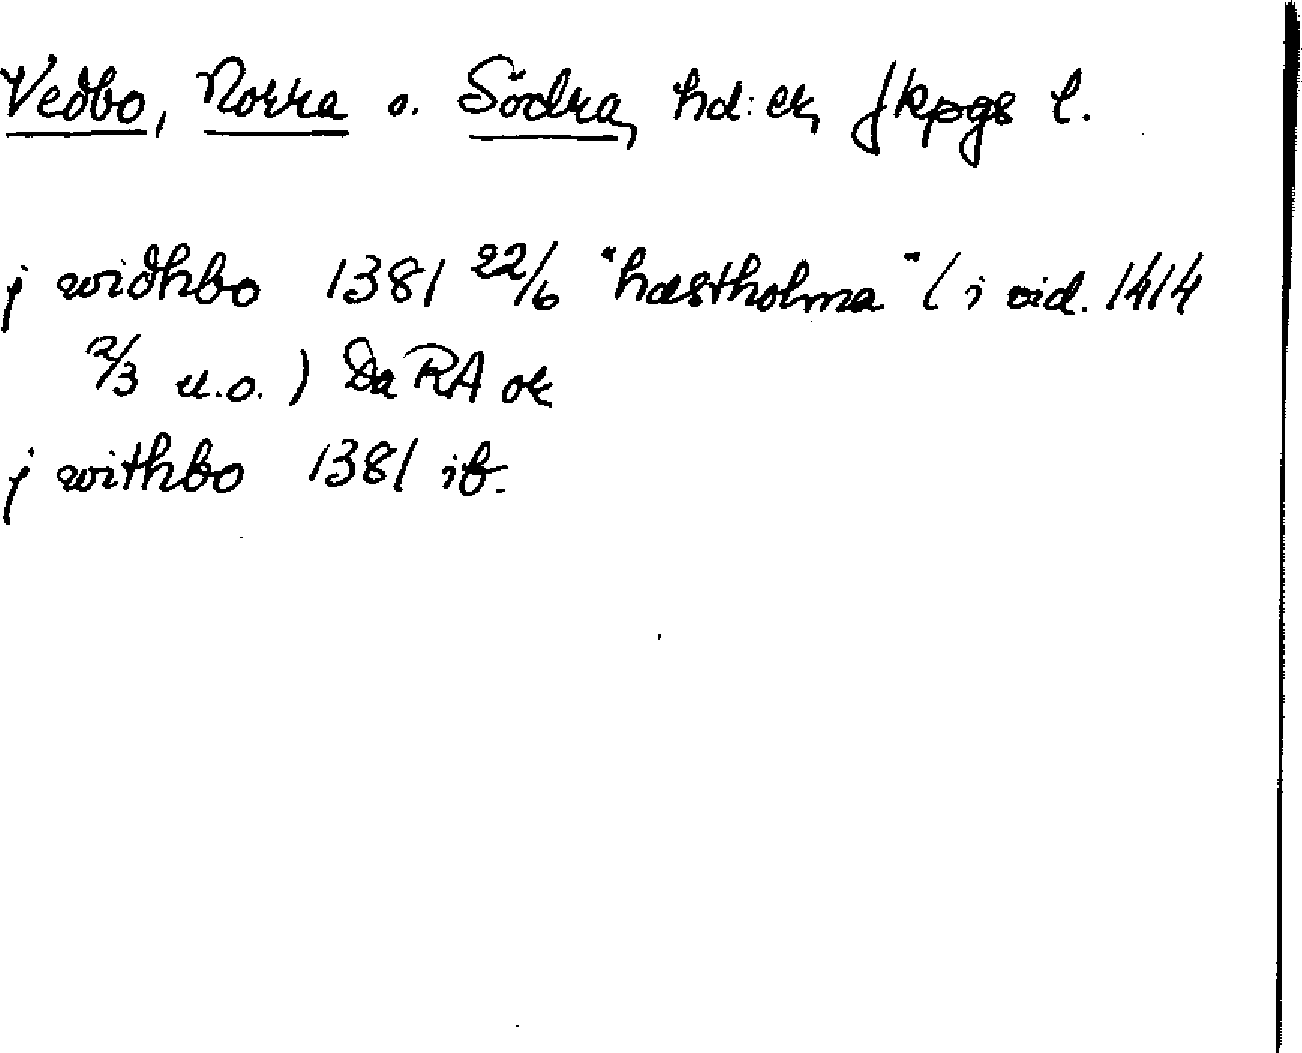 Vedbo, Norra o. Södra, hd:er, Jkpgs l.
j widhbo 1381 22/6 "hæstholma" (i vid. 1414
2/3 u.o.) Da RA or
j withbo 1381 ib.